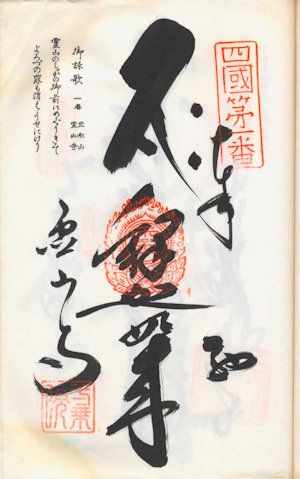 四國第一番
奉納
釋迦如来
霊山寺
御詠歌 一番 竺和山 霊山寺
霊山のしゃかの御前にめぐりきて
よろづの罪も消えうせにけり